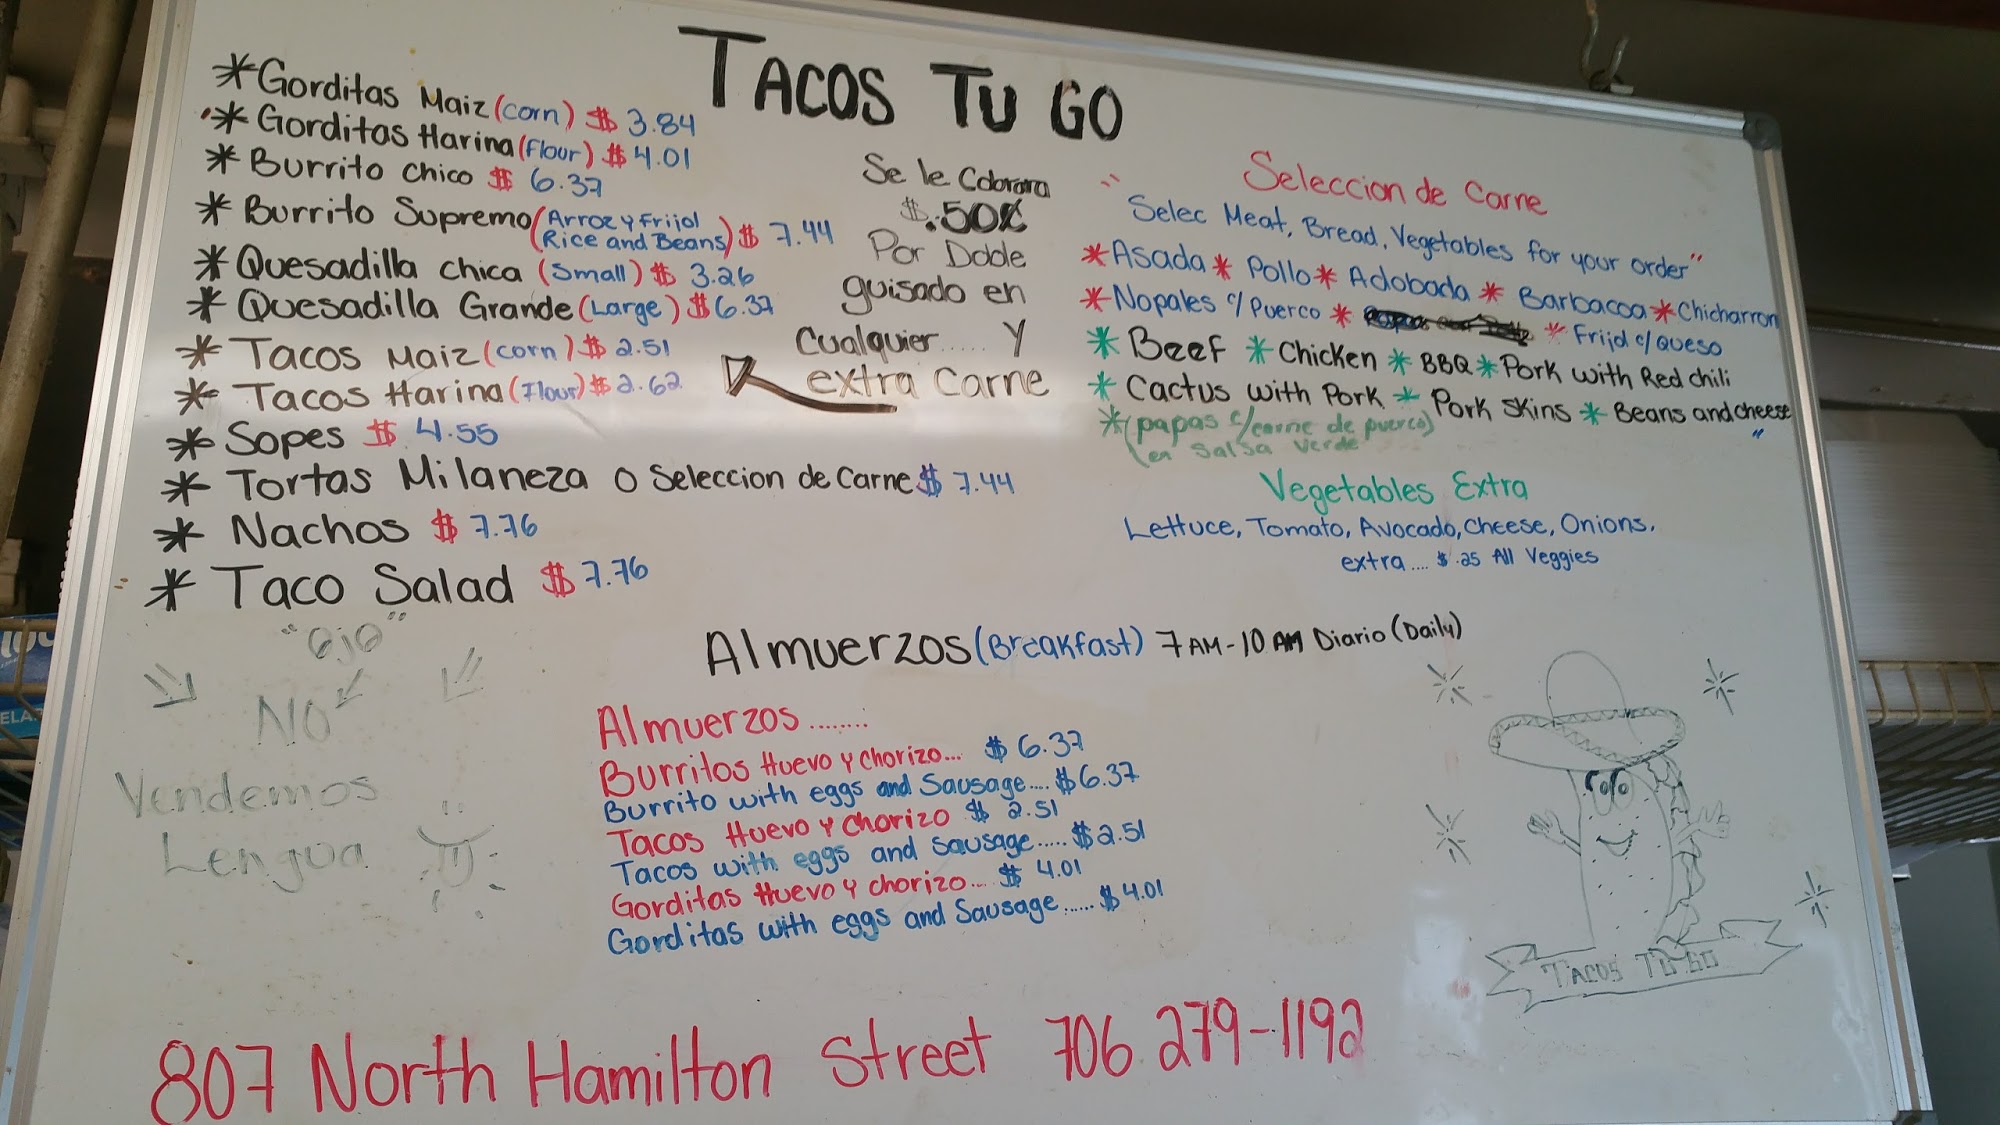 TACOS TU GO
* Gorditas Maiz (corn) $ 3.84
* Gorditas Harina (Flour) $ 4.01
* Burrito chico $ 6.37
* Burrito Supremo (Arroz y Frijol
Rice and Beans) $ 7.44
* Quesadilla chica (Small) $ 3.26
* Quesadilla Grande (Large) $ 6.37
* Tacos Maiz (corn) $ 2.51
* Tacos Harina (Flour) $ 2.62
* Sopes $ 4.55
* Tortas Milaneza o Seleccion de Carne $ 7.44
* Nachos $ 7.76
* Taco Salad $ 7.76
Se le Cobrara
$.50¢
Por Doble
guisado en
Cualquier..... Y
extra Carne
Seleccion de Carne
"Selec Meat, Bread, Vegetables for your order"
* Asada * Pollo * Adobada * Barbacoa * Chicharron
* Nopales c/ Puerco * * Frijol c/ queso
* Beef * Chicken * BBQ * Pork with Red chili
* Cactus with Pork * Pork Skins * Beans and cheese"
* (papas c/ carne de puerco)
(en Salsa Verde
Vegetables Extra
Lettuce, Tomato, Avocado, Cheese, Onions.
extra.... $.25 All Veggies
"Ojo"
NO
Vendemos
Lengua
Almuerzos (Breakfast) 7 AM-10 AM Diario (Daily)
Almuerzos ........
Burritos Huevo y Chorizo... $ 6.37
Burrito with eggs and Sausage.... $6.37
Tacos Huevo y chorizo $ 2.51
Tacos with eggs and sausage..... $2.51
Gorditas Huevo y chorizo... $ 4.01
Gorditas with eggs and Sausage...... $4.01
TACOS TU GO
807 North Hamilton Street 706 279-1192